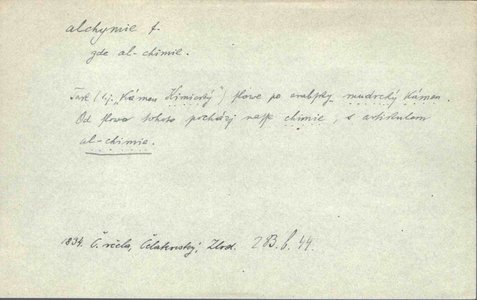 alchymie f.
gde al-chimie.
Tak (tj. „Kámen Kimický“) slowe po arabsku mudrcký kámen.
Od slowa tohoto pocházj nasse chimie, s artikulem
al-chimie.
1834. Č. včela, Čelakovský, Zlod. 283.b.44.